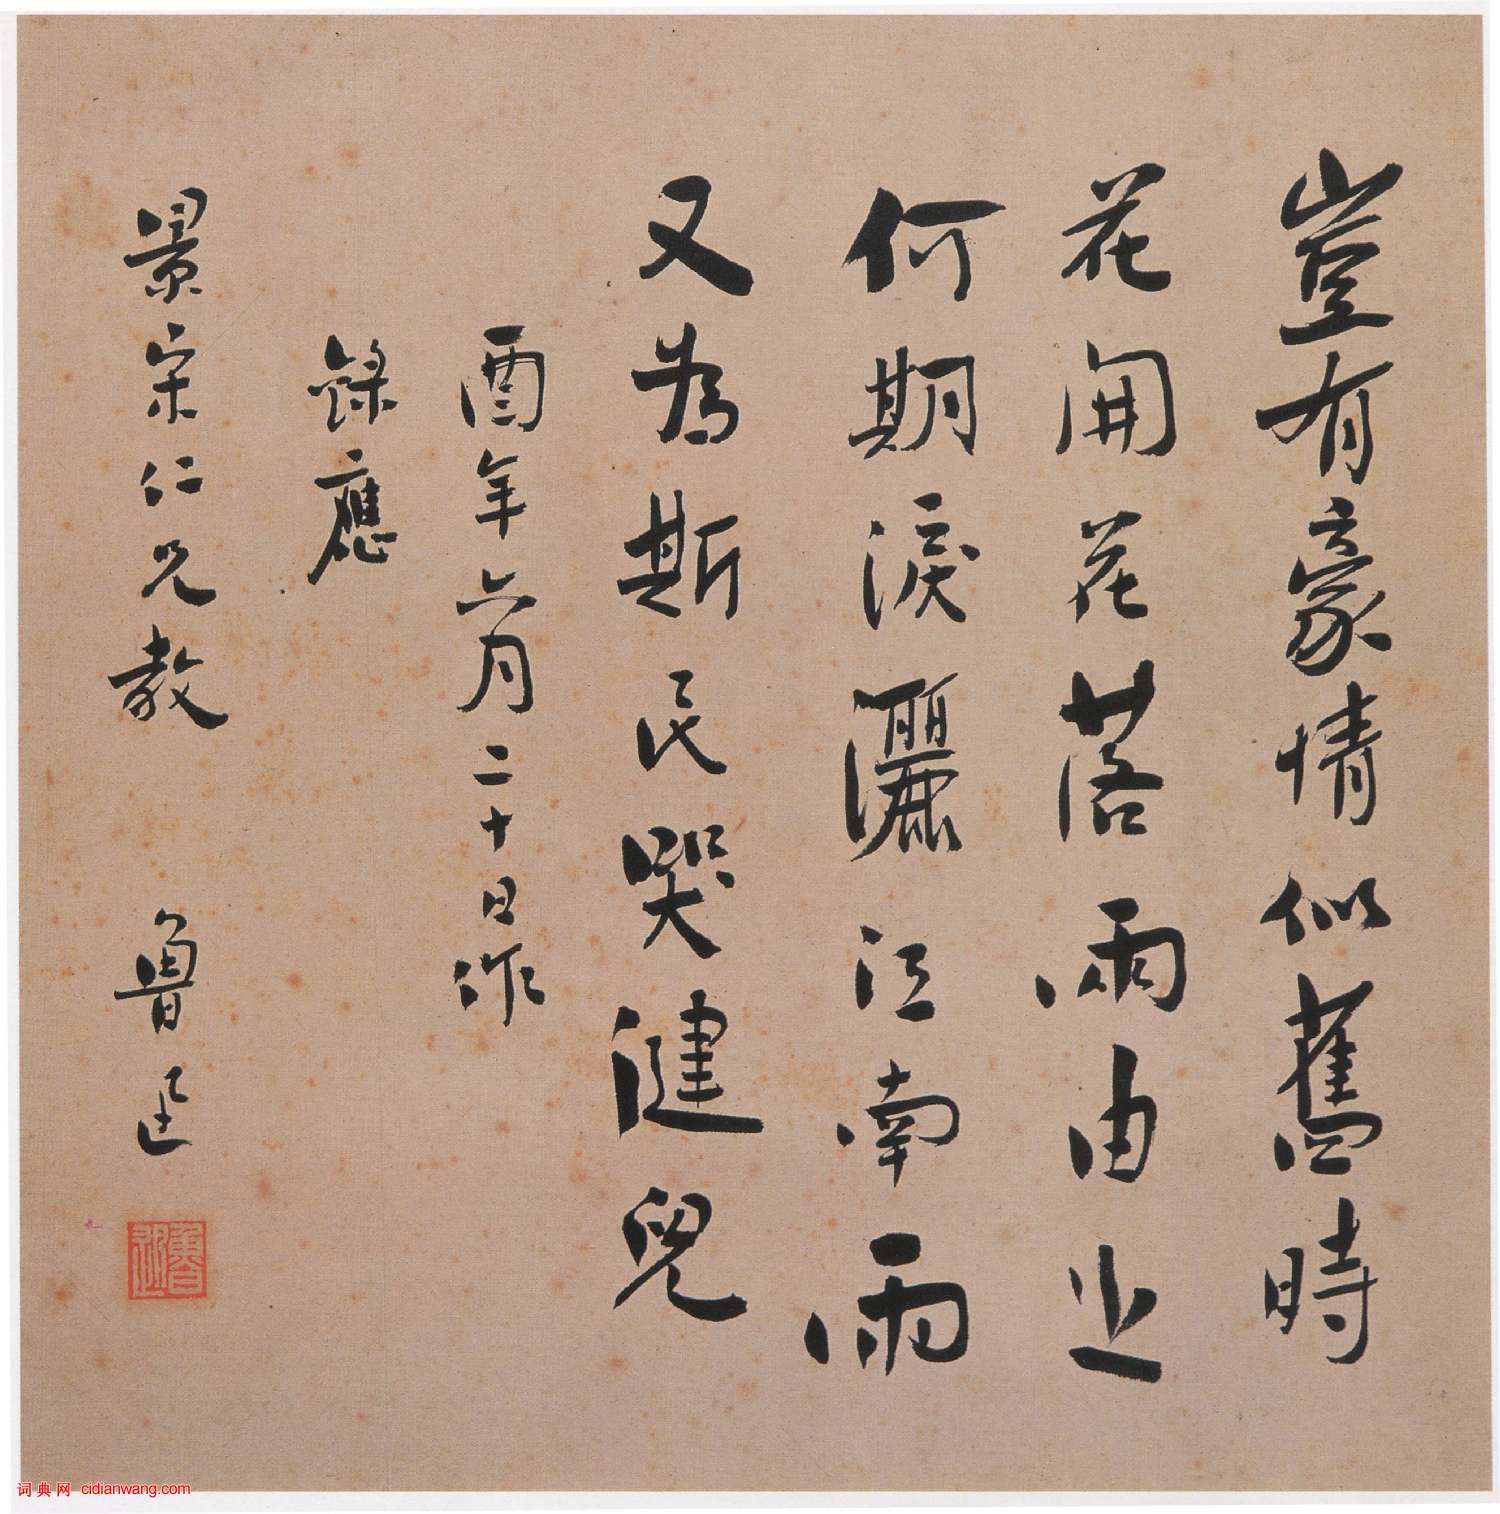 豈有豪情似舊時
花開花落兩由之
何期淚灑江南雨
又為斯民哭健兒
酉年六月二十日作
錄應
景宋仁兄教 魯迅
魯迅
词典网 cidianwang.com